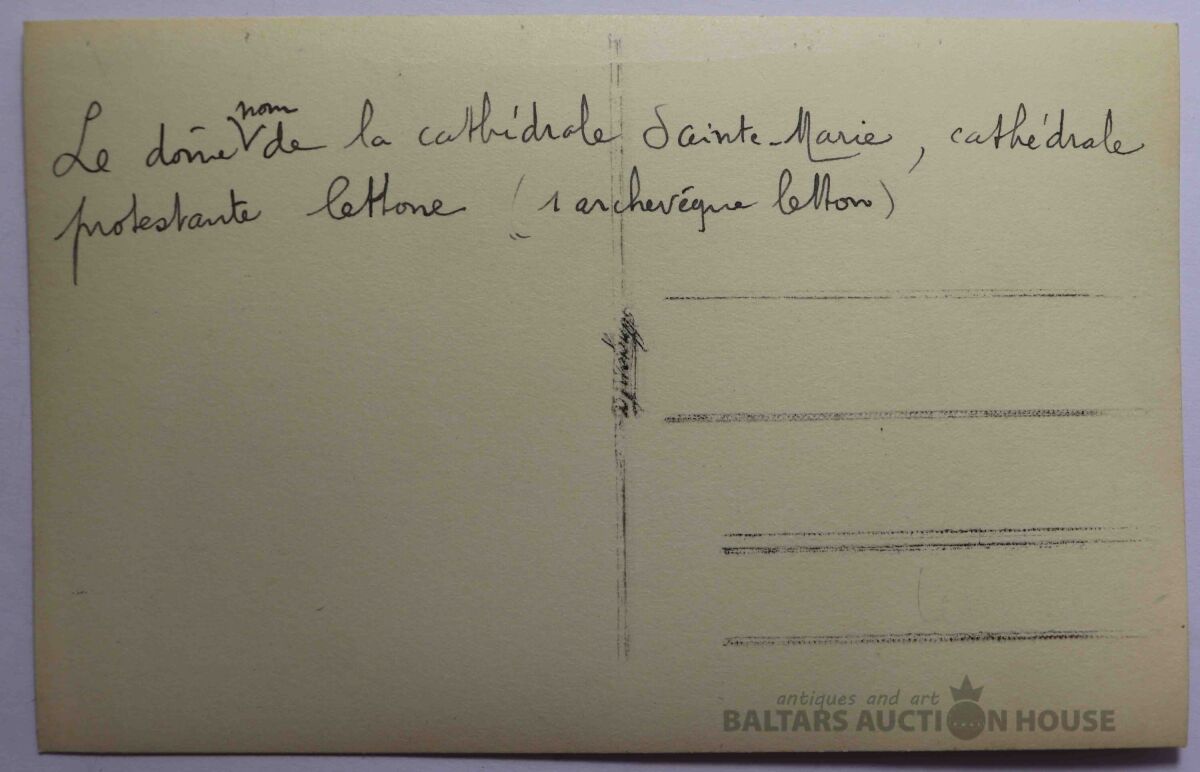 Le dôme nom de la cathédrale Sainte-Marie, cathédrale
protestante lettone (1 archevêque letton)
antiques and art
BALTARS AUCTION HOUSE